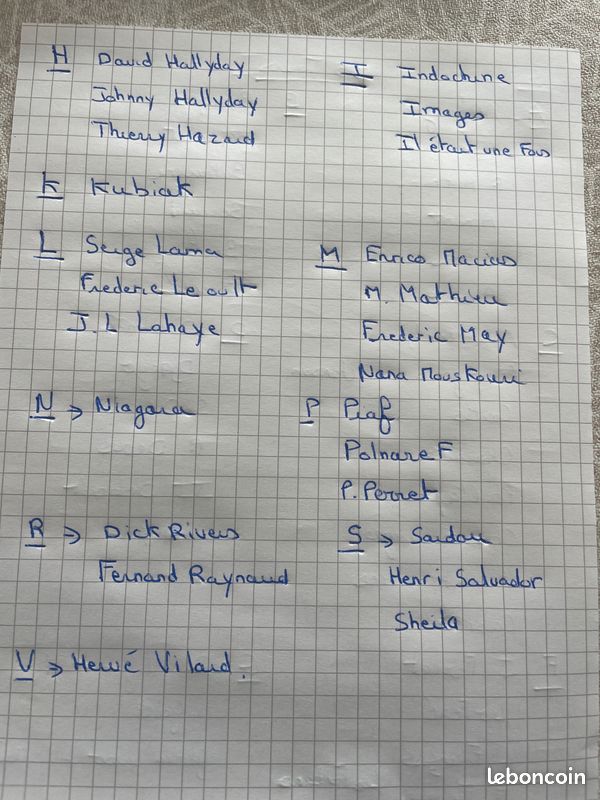 H David Hallyday
Johnny Hallyday
Thierry Hazard
I Indochine
Images
Il était une Fois
K Kubiak
L Serge Lama
Frederic Le oult
J.L Lahaye
M Enrico Macias
M. Mathieu
Frederic May
Nana Mouskouri
N → Niagara
P Piaf
PolnareF
P. Perret
R → Dick Rivers
Fernand Raynaud
S → Sardou
Henri Salvador
Sheila
V → Hervé Vilard.
leboncoin